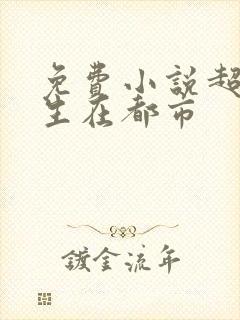 免費小説超
生在都市
鍍金流年